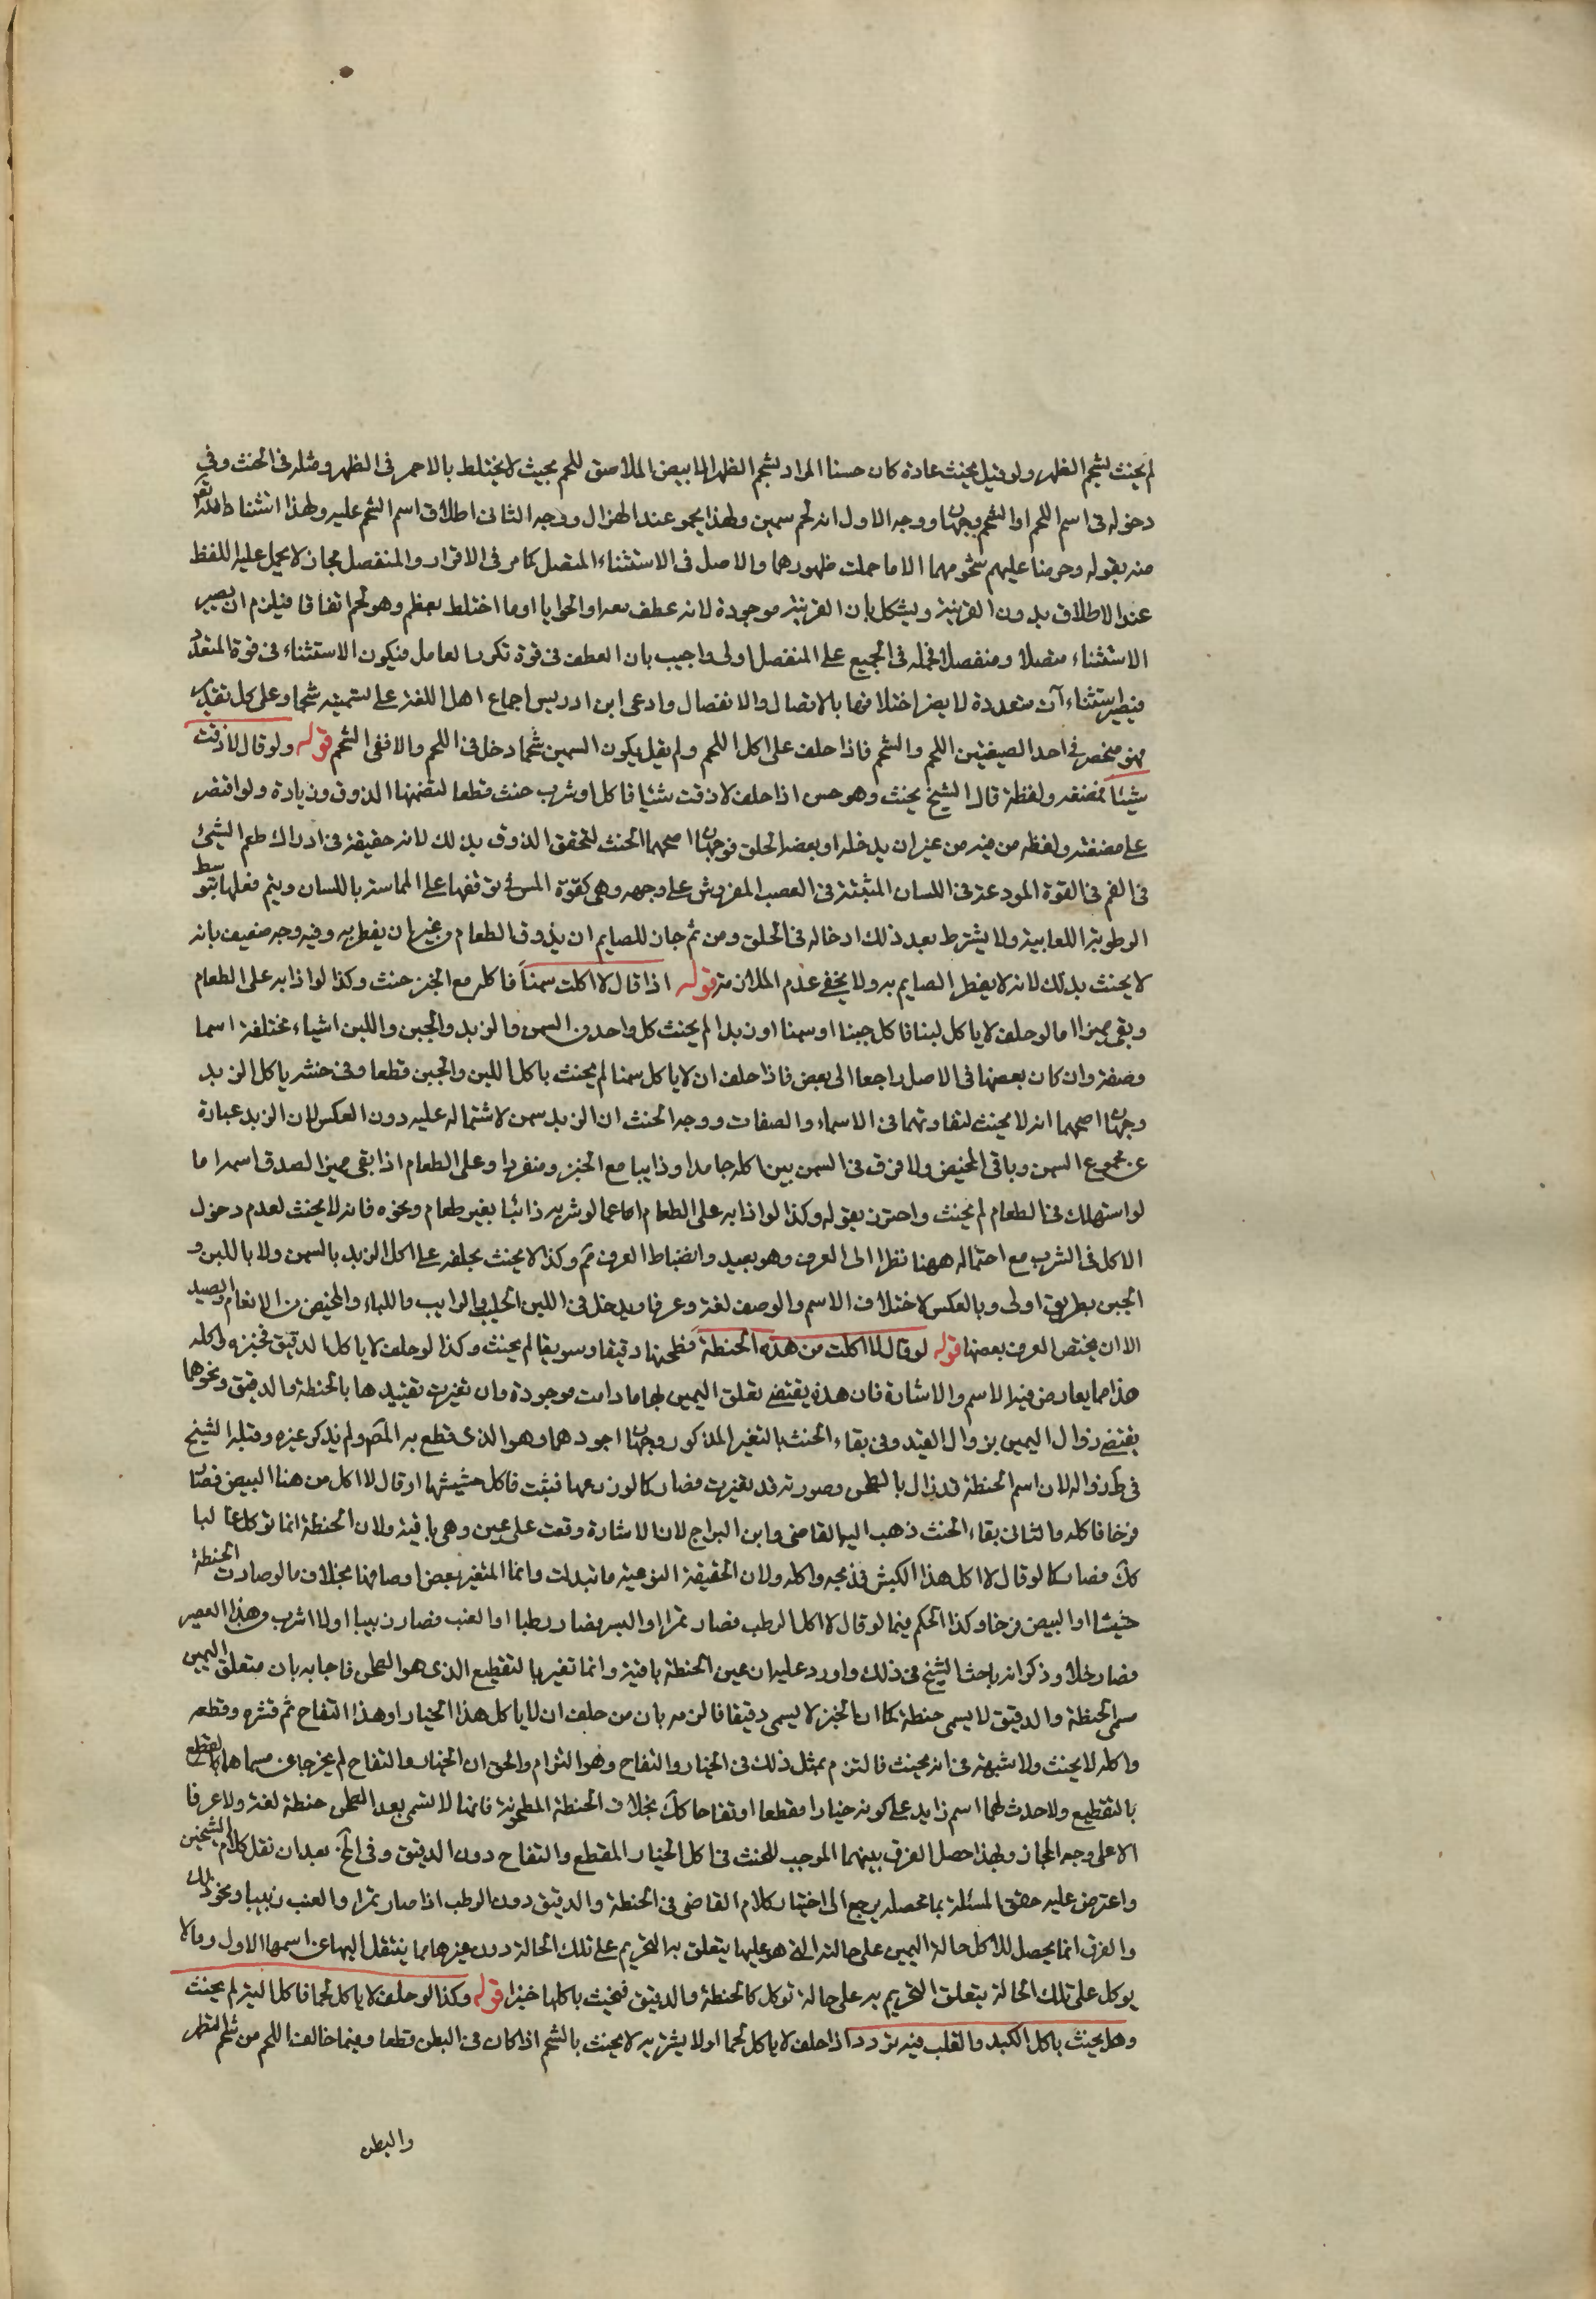 لم يحنث بشحم الظهر ولو قيل يحنث عادة كان حسنا المراد بشحم الظهر الابيض الملاصق للحم بحيث لا يختلط بالاحمر في الظهر ومثله في الجنب وفي
دخوله في اسم اللحم او الشحم وجهان ووجه الاول انه لحم سمين ولهذا يحمر عند الهزال ووجه الثاني اطلاق اسم الشحم عليه ولهذا استثناه الله تعالى
منه بقوله وحرمنا عليهم شحومهما الا ما حملت ظهورهما والاصل في الاستثناء المتصل كما مر في الاقرار والمنفصل مجاز لا يحمل عليه اللفظ
عند الاطلاق بدون القرينة ويشكل بان القرينة موجودة لانه عطف بعد او الحوايا او ما اختلط بعظم وهو لحم اتفاقا فيلزم ان يصير
الاستثناء متصلا ومنفصلا فحمله في الجميع على المنفصل اولى واجيب بان العطف في قوة تكرر العامل فيكون الاستثناء في قوة المتعدد
فيصير استثناءآت متعددة لا يضر اختلافها بالاتصال والانفصال وادعى ابن ادريس اجماع اهل اللغة على تسميته شحما وعلى كل تقدير
فهو منحصر في احد الصيغتين اللحم والشحم فاذا حلف على اكل اللحم ولم نقل بكون السمين شحما دخل في اللحم والا ففي الشحم قوله ولو قال لا ذقت
شيئا فمضغه ولفظه قال الشيخ يحنث وهو حسن اذا حلف لا ذقت شئيا فاكل او شرب حنث قطعا لتضمنها الذوق وزيادة ولو اقتصر
على مضغه ولفظه من فيه من غير ان يدخله او بعضه الحلق فوجهان اصحهما الحنث لتحقق الذوق بذلك لانه حقيقة في ادراك طعم الشئ
في الفم في القوة المودعة في اللسان المثبتة في العصب المفروش على وجهه وهي كقوة المس في توقفها على المماسة باللسان ويتم فعلها بتوسط
الرطوبة اللعابية ولا يشترط بعد ذلك ادخاله في الحلق ومن ثم جاز للصايم ان يذوق الطعام من غير ان يفطر به وفيه وجه ضعيف بانه
لا يحنث بذلك لانه لا يفطر الصايم به ولا يخفى عدم الملازمة قوله اذا قال لا اكلت سمنا فاكله مع الخبز حنث وكذا لو اذابه على الطعام
وبقي مميزا اما لو حلف لا ياكل لبنا فاكل جبنا او سمنا او زبدا لم يحنث كل واحد من السمن والزبد والجبن واللبن اشياء مختلفة اسما
وصفة وان كان بعضها في الاصل راجعا الى بعض فاذا حلف ان لا ياكل سمنا لم يحنث باكل اللبن والجبن قطعا وفي حنثه باكل الزبد
وجهان اصحهما انه لا يحنث لتفاوتهما في الاسماء والصفات ووجه الحنث ان الزبد سمن لاشتماله عليه دون العكس لان الزبد عبارة
عن مجموع السمن وباقي المخيض ولا فرق في السمن بين اكله جامدا وذايبا مع الخبز ومنفردا وعلى الطعام اذا بقي مميزا لصدق اسمه اما
لو استهلك في الطعام لم يحنث واحترز بقوله وكذا لو اذابه على الطعام اكا عما لو شربه ذائبا بغير طعام ونحوه فانه لا يحنث لعدم دخول
الاكل في الشرب مع احتماله ههنا نظرا الى العرف وهو بعيد وانضباط العرف ثم وكذا لا يحنث بحلفه على اكل الزبد بالسمن ولا باللبن و
الجبن بطريق اولى وبالعكس لاختلاف الاسم والوصف لغة وعرفا ويدخل في اللبن الحليب والرايب واللباء والمخيض من الانعام والصيد
الا ان يختص العرف بعضها قوله لو قال لا اكلت من هذه الحنطة فطحنها دقيقا وسويقا لم يحنث وكذا لو حلف لا ياكل الدقيق فخبزه واكله
هذا مما يعارض فيه الاسم والاشارة فان هذه يقتضي تعلق اليمين بها ما دامت موجودة وان تغيرت تقييدها بالحنطة والدقيق ونحوهما
يقتضي زوال اليمين بزوال القيد وفي بقاء الحنث بالتغير المذكور وجهان اجودهما وهو الذي قطع به المصـ ولم يذكر غيره وقبله الشيخ
في ط زواله لان اسم الحنطة قد زال بالطحن وصورته قد تغيرت فصار كما لو زرعها فنبتت فاكل حشيشها او قال لا اكل من هذا البيض فصار
فرخا فاكله والثاني بقاء الحنث ذهب اليه القاضي وابن البراج لان الاشارة وقعت على عين وهي باقية ولان الحنطة انما توكل غالبا
كك فصار كما لو قال لا اكل هذا الكبش فذبحه واكله ولان الحقيقة النوعية ما تبدلت وانما المتغير بعض اوصافها بخلاف ما لو صارت الحنطة
حشيشا او البيض فرخا وكذا الحكم فيما لو قال لا اكل الرطب فصار تمرا او البسر فصار رطبا او العنب فصار زبيبا او لا اشرب هذا العصير
فصار خلا وذكر انه باحث الشيخ في ذلك واورد عليه ان عين الحنطة باقية وانما تغير بالتقطيع الذي هو الطحن فاجابه بان متعلق اليمين
مسمى الحنطة والدقيق لا يسمى حنطة كما ان الخبز لا يسمى دقيقا فالزمه بان من حلف ان لا ياكل هذا الخيار او هذا التفاح ثم قشره وقطعه
واكله لا يحنث ولا شبهة في انه يحنث فالتزم بمثل ذلك في الخيار والتفاح وهو التزام والحق ان الخيار والتفاح لم يخرجا عن مسماهما بالقطع
بالتقطيع ولا حدث لهما اسم زايد على كونه خيارا مقطعا او تفاحا كك بخلاف الحنطة المطحونة فانها لا تسمى بعد الطحن حنطة لغة ولا عرفا
الا على وجه المجاز ولهذا حصل الفرق بينهما الموجب للحنث في اكل الخيار المقطع والتفاح دون الدقيق وفي لخ بعد ان نقل كلام الشيخين
واعترض عليه حقق المسئلة بما محصله يرجع الى اختيار كلام القاضي في الحنطة والدقيق دون الرطب اذا صار تمرا والعنب زبيبا ونحو ذلك
والفرق انما يحصل للاكل حالة اليمين على حالته التي هو عليها يتعلق به التحريم على تلك الحالة دون غيرها مما ينتقل اليها عن اسمها الاول وما لا
يوكل على تلك الحالة يتعلق التحريم به على حالة توكل كالحنطة والدقيق فيحنث باكلها خبزا قوله وكذا لو حلف لا ياكل لحما فاكل الية لم يحنث
وهل يحنث باكل الكبد والقلب فيه تردد اذا حلف لا ياكل لحما او لا يشتريه لا يحنث بالشحم اذا كان في البطن قطعا وفيما خالف اللحم من شحم الظهر
والبطن